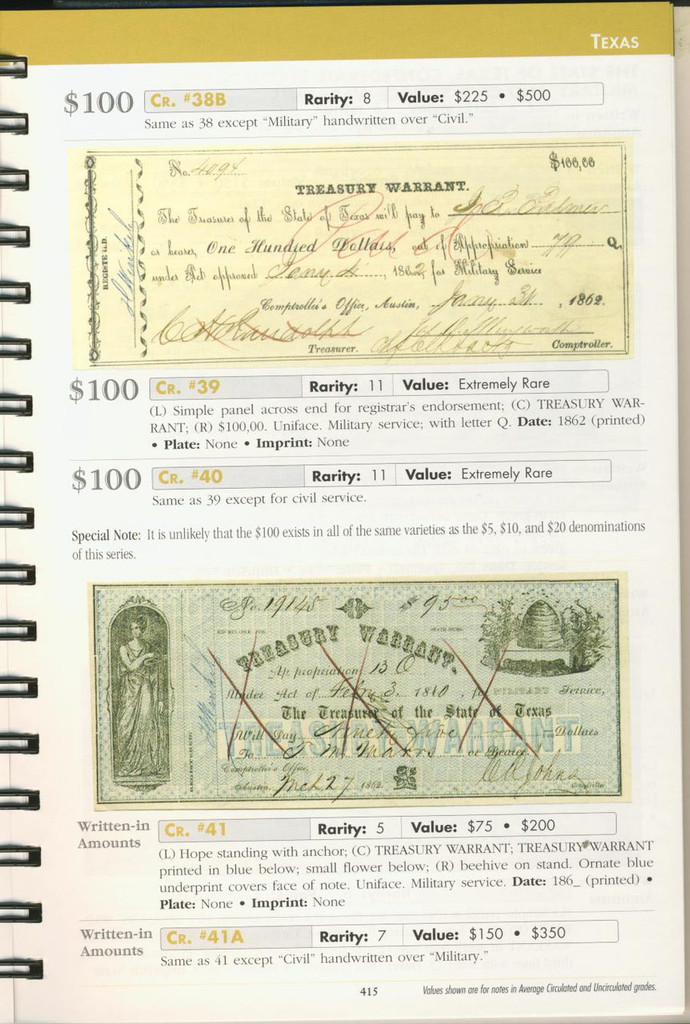 TEXAS
$100 CR. #38B Rarity: 8 Value: $225 • $500
Same as 38 except "Military" handwritten over "Civil."
No. 4094 $100,00
TREASURY WARRANT.
The Treasurer of the State of Texas will pay to
or bearer, One Hundred Dollars, out of Appropriation 79 Q.
under Act approved Jany 4, 1862, for Military Service
Comptroller's Office, Austin, Jany 31, 1862.
C H Randolph
Treasurer. Comptroller.
$100 CR. #39 Rarity: 11 Value: Extremely Rare
(L) Simple panel across end for registrar's endorsement; (C) TREASURY WAR-
RANT; (R) $100,00. Uniface. Military service; with letter Q. Date: 1862 (printed)
• Plate: None • Imprint: None
$100 CR. #40 Rarity: 11 Value: Extremely Rare
Same as 39 except for civil service.
Special Note: It is unlikely that the $100 exists in all of the same varieties as the $5, $10, and $20 denominations
of this series.
No. 19145 $95.00
TREASURY WARRANT.
Appropriation 130
Under Act of Feby 3, 1860, for MILITARY Service,
The Treasurer of the State of Texas
Will Pay Ninety five Dollars
To or Bearer
TREASURY WARRANT
Comptroller's Office,
Austin, Mch 27 1862.
Written-in Amounts CR. #41 Rarity: 5 Value: $75 • $200
(L) Hope standing with anchor; (C) TREASURY WARRANT; TREASURY WARRANT
printed in blue below; small flower below; (R) beehive on stand. Ornate blue
underprint covers face of note. Uniface. Military service. Date: 186_ (printed) •
Plate: None • Imprint: None
Written-in Amounts CR. #41A Rarity: 7 Value: $150 • $350
Same as 41 except "Civil" handwritten over "Military."
415 Values shown are for notes in Average Circulated and Uncirculated grades.